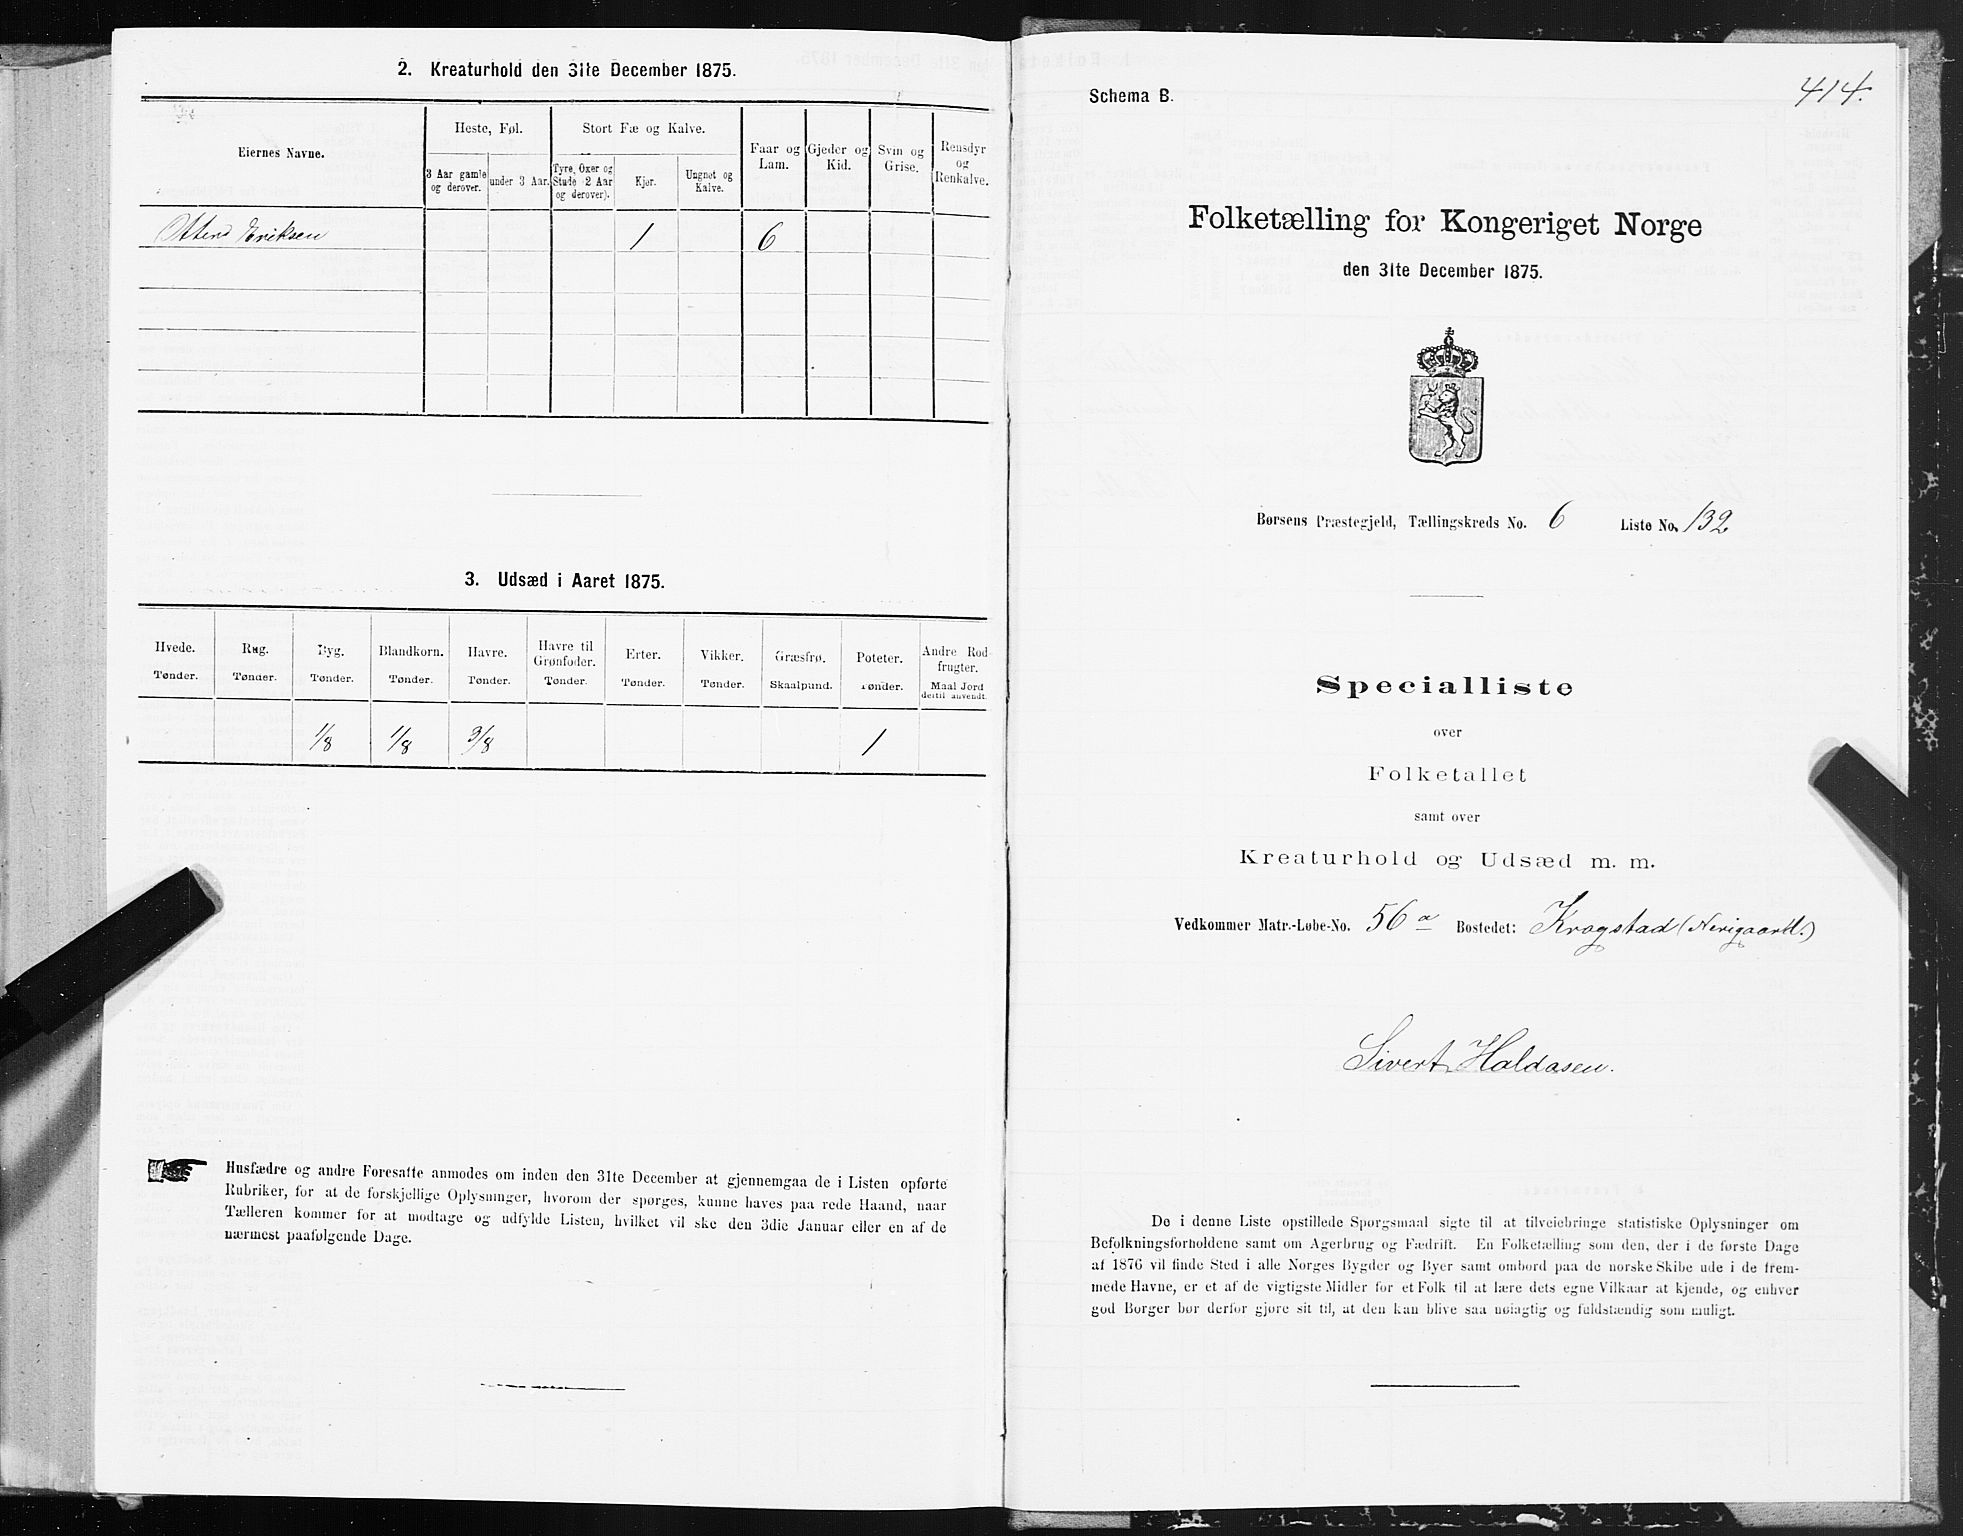 2. Kreaturhold den 31te December 1875.
Eiernes Navne.
Heste, Føl.
Stort Fæ og Kalve.
Faar og Lam.
Gjeder og Kid.
Svin og Grise.
Rensdyr og Renkalve.
3 Aar gamle og derover.
under 3 Aar.
Tyre, Oxer og Stude 2 Aar og derover).
Kjør.
Ungnøt og Kalve.
Eriksen 1 6
3. Udsæd i Aaret 1875.
Hvede. Rug. Byg. Blandkorn. Havre. Havre til Grønfoder. Erter. Vikker. Græsfrø. Poteter. Andre Rodfrugter.
Tønder. Tønder. Tønder. Tønder. Tønder. Tønder. Tønder. Tønder. Skaalpund. Tønder. Maal Jord dertil anvendt.
1/8 1/8 3/8 1
Husfædre og andre Foresatte anmodes om inden den 31te December at gjennemgaa de i Listen opførte
Rubriker, for at de forskjellige Oplysninger, hvorom der spørges, kunne haves paa rede Haand, naar
Tælleren kommer for at modtage og udfylde Listen, hvilket vil ske den 3die Januar eller en af de
nærmest paafølgende Dage.
Schema B.
414.
Folketælling for Kongeriget Norge
den 31te December 1875.
Børsens Præstegjeld, Tællingskreds No. 6 Liste No. 132
Specialliste
over
Folketallet
samt over
Kreaturhold og Udsæd m. m.
Vedkommer Matr.-Løbe-No. 56 a Bostedet: Krogstad (Nerigaard.)
Sivert Haldosen.
De i denne Liste opstillede Spørgsmaal sigte til at tilveiebringe statistiske Oplysninger om
Befolkningsforholdene samt om Agerbrug og Fædrift. En Folketælling som den, der i de første Dage
af 1876 vil finde Sted i alle Norges Bygder og Byer samt ombord paa de norske Skibe ude i de frem-
mede Havne, er et af de vigtigste Midler for et Folk til at lære dets egne Vilkaar at kjende, og enhver
god Borger bør derfor gjøre sit til, at den kan blive saa nøiagtig og fuldstændig som muligt.